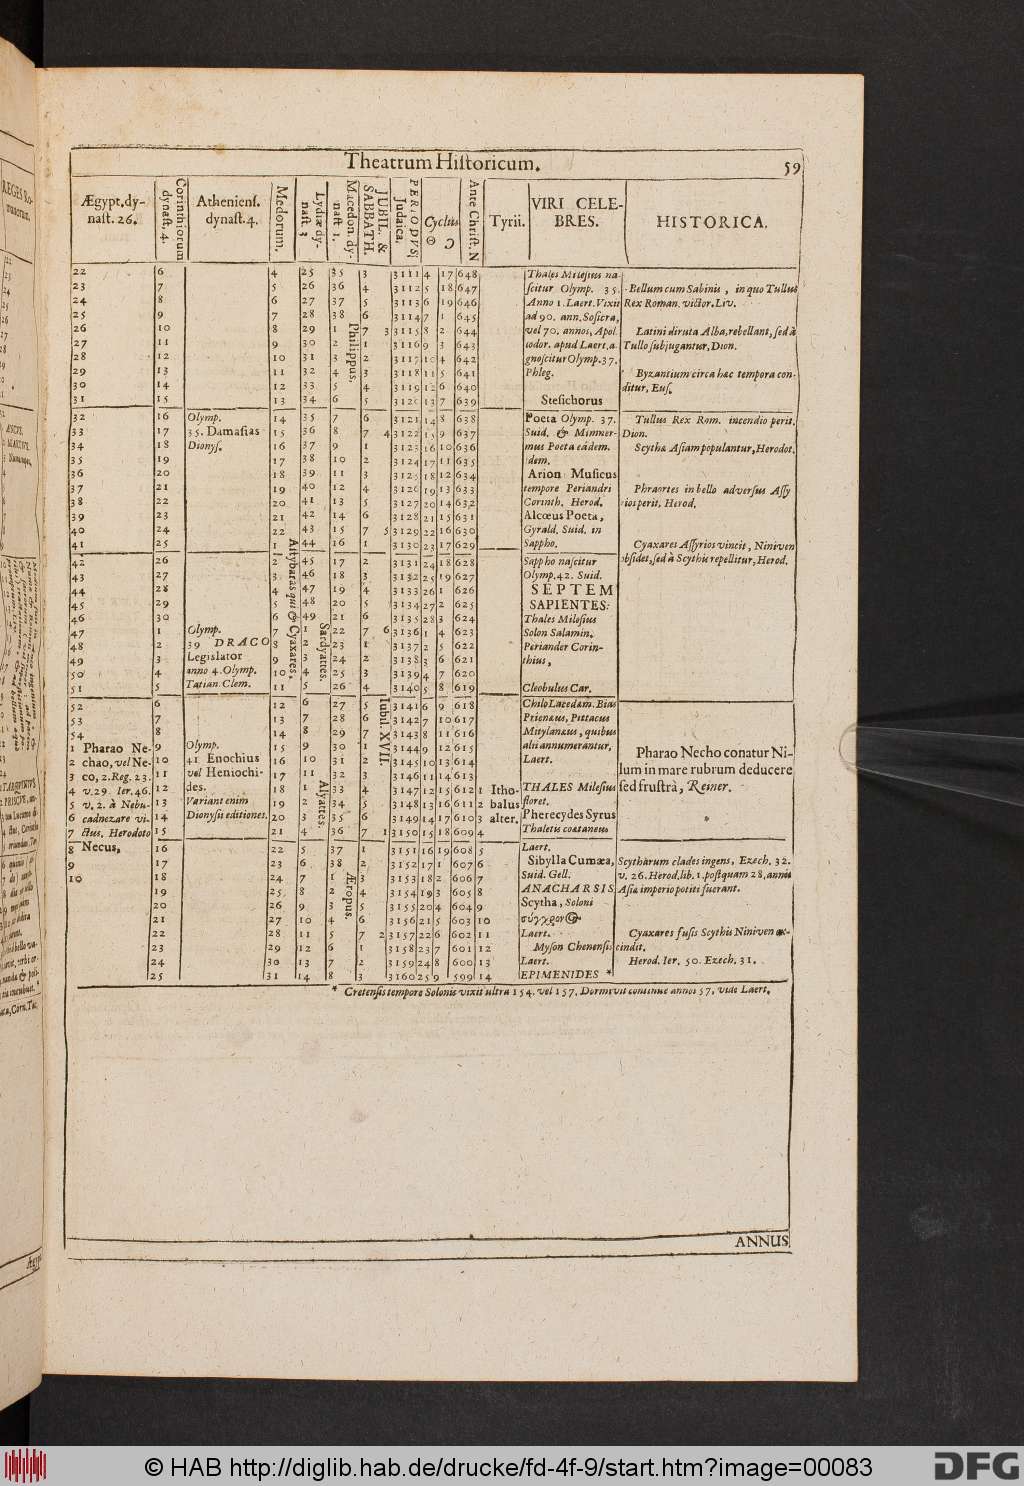 Theatrum Historicum. 59
Ægypt. dy-
nast. 26.
Corinthiorum
dynast. 4.
Atheniens.
dynast. 4.
Medorum.
Lydiæ dy-
nast. 3
Macedon. dy-
nast. 1.
JUBIL. &
SABBATH.
PERIODUS
Judaica.
Cyclus
☉ ☽
Ante Christ. N
Tyrii.
VIRI CELE-
BRES.
HISTORICA.
22 6 4 25 35 3 3111 4 17 648 Thales Milesius na-
23 7 5 26 36 4 3112 5 18 647 scitur Olymp. 35. Bellum cum Sabinis, in quo Tullus
24 8 6 27 37 5 3113 6 19 646 Anno 1. Laert. Vixit Rex Roman. victor. Liv.
25 9 7 28 38 6 3114 7 1 645 ad 90. ann. Sosicra,
26 10 8 29 1 7 3 3115 8 2 644 vel 70. annos, Apol. Latini diruta Alba, rebellant, sed à
27 11 9 30 2 1 3116 9 3 643 lodor. apud Laert. a. Tullo subjugantur, Dion.
28 12 10 31 3 2 3117 10 4 642 gnoscitur Olymp. 37.
29 13 11 32 4 3 3118 11 5 641 Phleg. Byzantium circa hæc tempora con-
30 14 12 33 5 4 3119 12 6 640 ditur, Eus.
31 15 13 34 6 5 3120 13 7 639 Stesichorus
Philippus.
32 16 Olymp. 14 35 7 6 3121 14 8 638 Poeta Olymp. 37. Tullus Rex Rom. incendio perit.
33 17 35. Damasias 15 36 8 7 4 3122 15 9 637 Suid. & Mimner- Dion.
34 18 Dionys. 16 37 9 1 3123 16 10 636 mus Poeta eâdem. Scythæ Asiam populantur, Herodot.
35 19 17 38 10 2 3124 17 11 635 dem.
36 20 18 39 11 3 3125 18 12 634 Arion Musicus
37 21 19 40 12 4 3126 19 13 633 tempore Periandri Phraortes in bello adversus Assy
38 22 20 41 13 5 3127 20 14 632 Corinth. Herod. rios perit. Herod.
39 23 21 42 14 6 3128 21 15 631 Alcœus Poeta,
40 24 22 43 15 7 5 3129 22 16 630 Gyrald. Suid. in
41 25 1 44 16 1 3130 23 17 629 Sappho. Cyaxares Assyrios vincit, Niniven
42 26 2 45 17 2 3131 24 18 628 Sappho nascitur obsidet, sed à Scythis repellitur, Herod.
43 27 3 46 18 3 3132 25 19 627 Olymp. 42. Suid.
44 28 4 47 19 4 3133 26 1 626 SEPTEM
45 29 5 48 20 5 3134 27 2 625 SAPIENTES:
46 30 6 49 21 6 3135 28 3 624 Thales Milesius
47 1 Olymp. 7 1 22 7 6 3136 1 4 623 Solon Salamin.
48 2 39 DRACO 8 2 23 1 3137 2 5 622 Periander Corin-
49 3 Legislator 9 3 24 2 3138 3 6 621 thius,
50 4 anno 4. Olymp. 10 4 25 3 3139 4 7 620
51 5 Tatian. Clem. 11 5 26 4 3140 5 8 619 Cleobulus Car.
Astybaras qui & Cyaxares.
Sardyattes.
52 6 12 6 27 5 3141 6 9 618 Chilo Lacedæm. Bias
53 7 13 7 28 6 3142 7 10 617 Prienæus, Pittacus
54 8 14 8 29 7 3143 8 11 616 Mitylanæus, quibus
1 Pharao Ne- 9 Olymp. 15 9 30 1 3144 9 12 615 alii annumerantur, Pharao Necho conatur Ni-
2 chao, vel Ne- 10 41 Enochius 16 10 31 2 3145 10 13 614 Laert. lum in mare rubrum deducere
3 co, 2. Reg. 23. 11 vel Heniochi- 17 11 32 3 3146 11 14 613
4 v. 29. Ier. 46. 12 des. 18 1 33 4 3147 12 15 612 1 Itho- THALES Milesius sed frustrà, Reiner.
5 v. 2. à Nebu- 13 Variant enim 19 2 34 5 3148 13 16 611 2 balus floret.
6 cadnezare vi- 14 Dionysii editiones. 20 3 35 6 3149 14 17 610 3 alter. Pherecydes Syrus
7 ctus. Herodoto 15 21 4 36 7 1 3150 15 18 609 4 Thaletis coætaneus
Jubil. XVII.
Alyattes.
8 Necus, 16 22 5 37 1 3151 16 19 608 5 Laert.
9 17 23 6 38 2 3152 17 1 607 6 Sibylla Cumæa, Scytharum clades ingens, Ezech. 32.
10 18 24 7 1 3 3153 18 2 606 7 Suid. Gell. v. 26. Herod. lib. 1. postquam 28. annis
19 25 8 2 4 3154 19 3 605 8 ANACHARSIS Asiæ imperio potiti fuerant.
20 26 9 3 5 3155 20 4 604 9 Scytha, Soloni
21 27 10 4 6 3156 21 5 603 10
22 28 11 5 7 2 3157 22 6 602 11 Laert. Cyaxares fusis Scythis Niniven ex-
23 29 12 6 1 3158 23 7 601 12 Myson Chenensis cindit.
24 30 13 7 2 3159 24 8 600 13 Laert. Herod. Ier. 50. Ezech. 31.
25 31 14 8 3 3160 25 9 599 14 EPIMENIDES *
Æropus.
* Cretensis tempore Solonis vixit ultra 154. vel 157. Dormivit continue annos 57. vide Laert.
ANNUS
© HAB http://diglib.hab.de/drucke/fd-4f-9/start.htm?image=00083
DFG